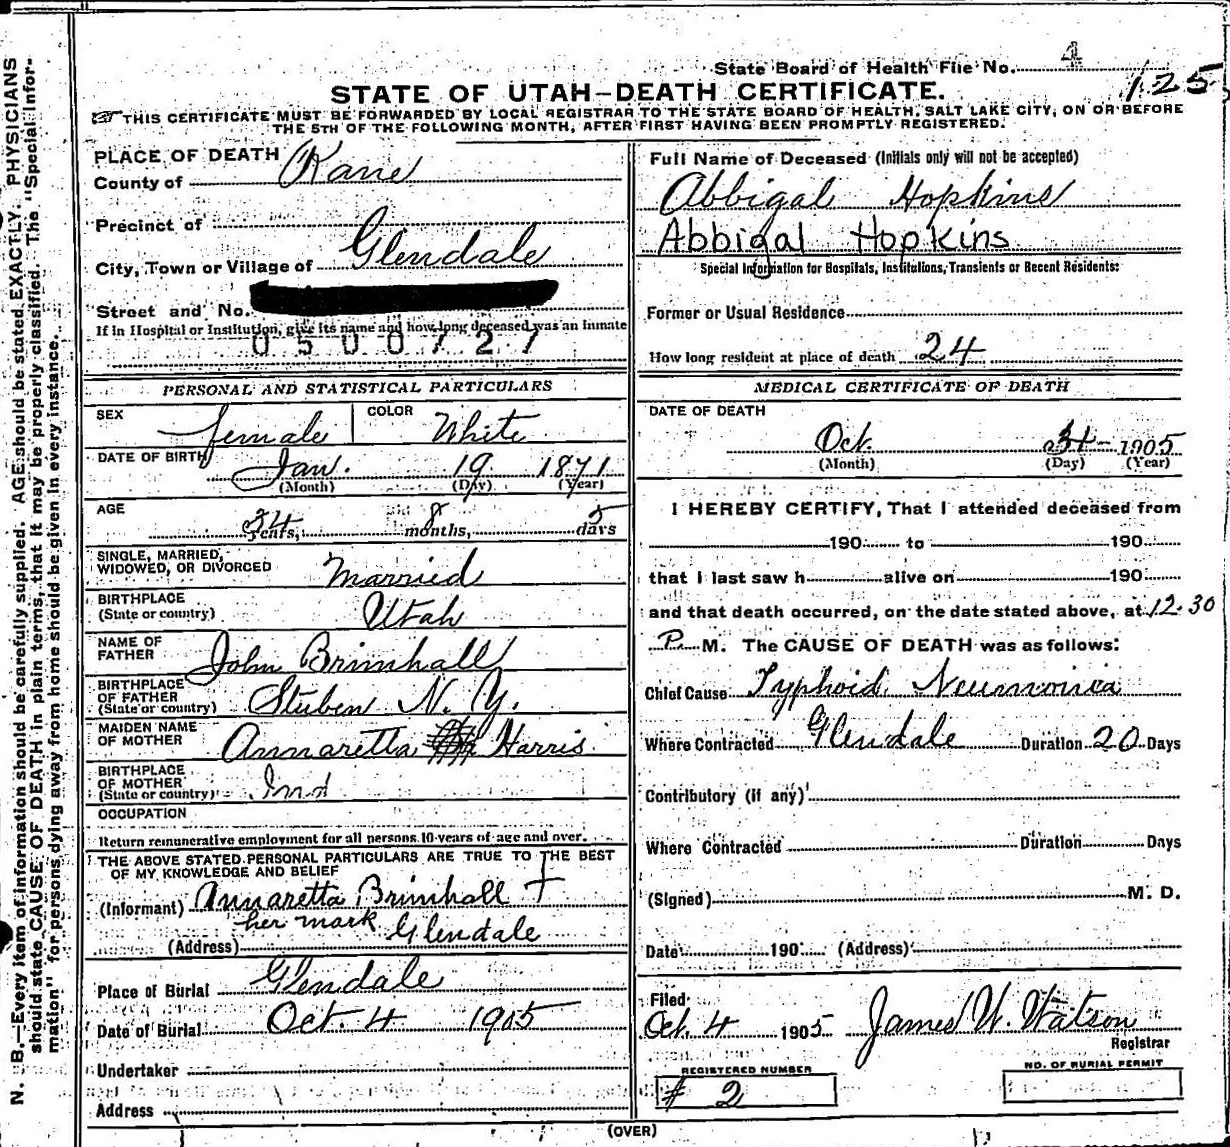 State Board of Health File No. 4
125
STATE OF UTAH—DEATH CERTIFICATE.
THIS CERTIFICATE MUST BE FORWARDED BY LOCAL REGISTRAR TO THE STATE BOARD OF HEALTH, SALT LAKE CITY, ON OR BEFORE
THE 5TH OF THE FOLLOWING MONTH, AFTER FIRST HAVING BEEN PROMPTLY REGISTERED.
PLACE OF DEATH
County of Kane
Precinct of
City, Town or Village of Glendale
Street and No.
If in Hospital or Institution, give its name and how long deceased was an inmate
0500727
PERSONAL AND STATISTICAL PARTICULARS
SEX female COLOR White
DATE OF BIRTH Jan. 19 1871
(Month) (Day) (Year)
AGE
34 years, 8 months, 5 days
SINGLE, MARRIED,
WIDOWED, OR DIVORCED Married
BIRTHPLACE
(State or country) Utah
NAME OF
FATHER John Brimhall
BIRTHPLACE
OF FATHER
(State or country) Stuben N. Y.
MAIDEN NAME
OF MOTHER Annaretta Harris
BIRTHPLACE
OF MOTHER
(State or country) Ind
OCCUPATION
Return remunerative employment for all persons 10 years of age and over.
THE ABOVE STATED PERSONAL PARTICULARS ARE TRUE TO THE BEST
OF MY KNOWLEDGE AND BELIEF
(Informant) Annaretta Brimhall †
her mark
(Address) Glendale
Place of Burial Glendale
Date of Burial Oct. 4 1905
Undertaker
Address
Full Name of Deceased (Initials only will not be accepted)
Abbigal Hopkins
Abbigal Hopkins
Special Information for Hospitals, Institutions, Transients or Recent Residents:
Former or Usual Residence
How long resident at place of death 24
MEDICAL CERTIFICATE OF DEATH
DATE OF DEATH
Oct. 1905
(Month) (Day) (Year)
I HEREBY CERTIFY, That I attended deceased from
190 to 190
that I last saw h alive on 190
and that death occurred, on the date stated above, at 12.30
P. M. The CAUSE OF DEATH was as follows:
Chief Cause Typhoid Neumonia
Where Contracted Glendale Duration 20 Days
Contributory (if any)
Where Contracted Duration Days
(Signed) M. D.
Date 190 (Address)
Filed
Oct. 4 1905 James W. Watson
Registrar
REGISTERED NUMBER
# 2
NO. OF BURIAL PERMIT
(OVER)
N. B.—Every item of information should be carefully supplied. AGE should be stated EXACTLY. PHYSICIANS
should state CAUSE OF DEATH in plain terms, that it may be properly classified. The "Special Infor-
mation" for persons dying away from home should be given in every instance.